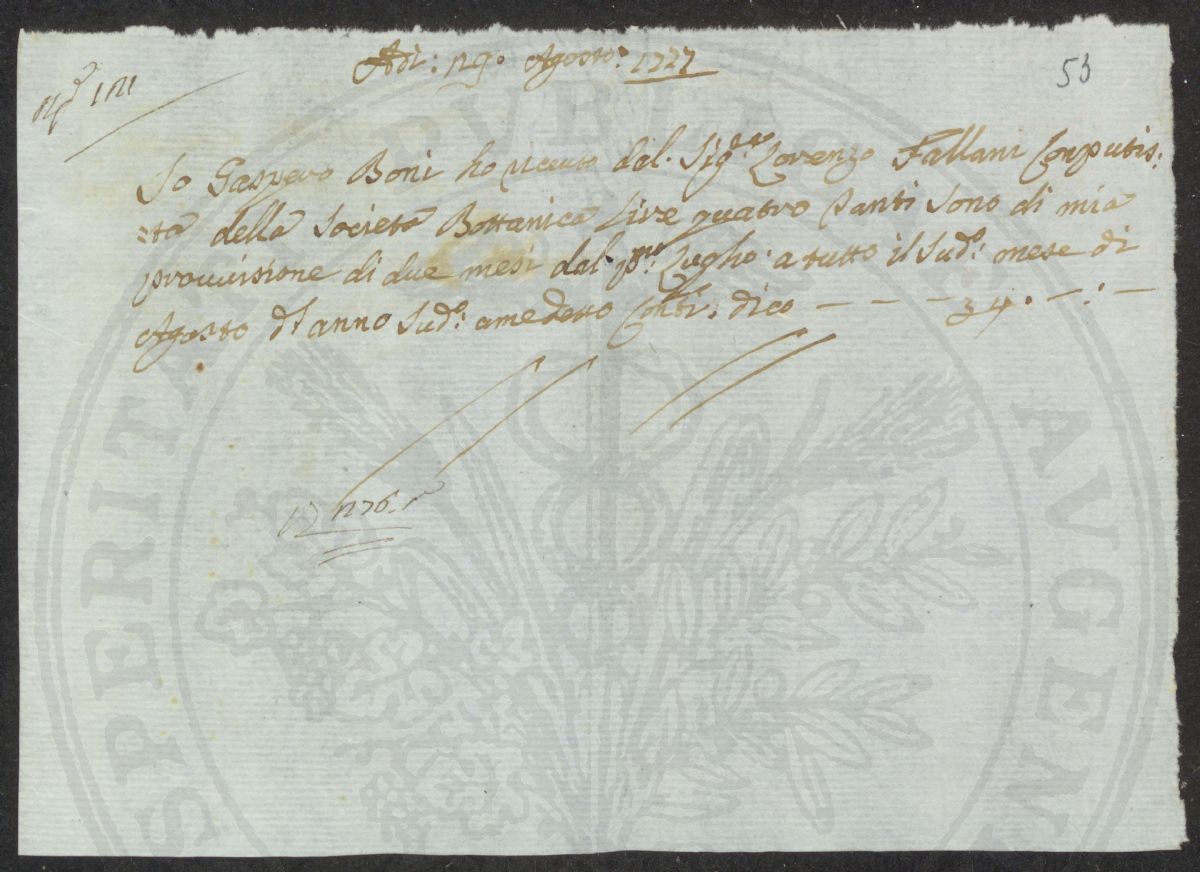 Adi: 29. Agosto: 1727
53
Io Gaspero Boni ho riceuto dal Sig:re Lorenzo Fallani Conputis:
:ta della Società Bottanica Lire quatro tanti sono di mia
prouuisione di due mesi dal p.mo Luglio a tutto il Sud:o mese di
Agosto d'anno Sud:o amedetto Conti: dico — — — 4. —:—
PUBLICAE
SPERITATI
AUGEM